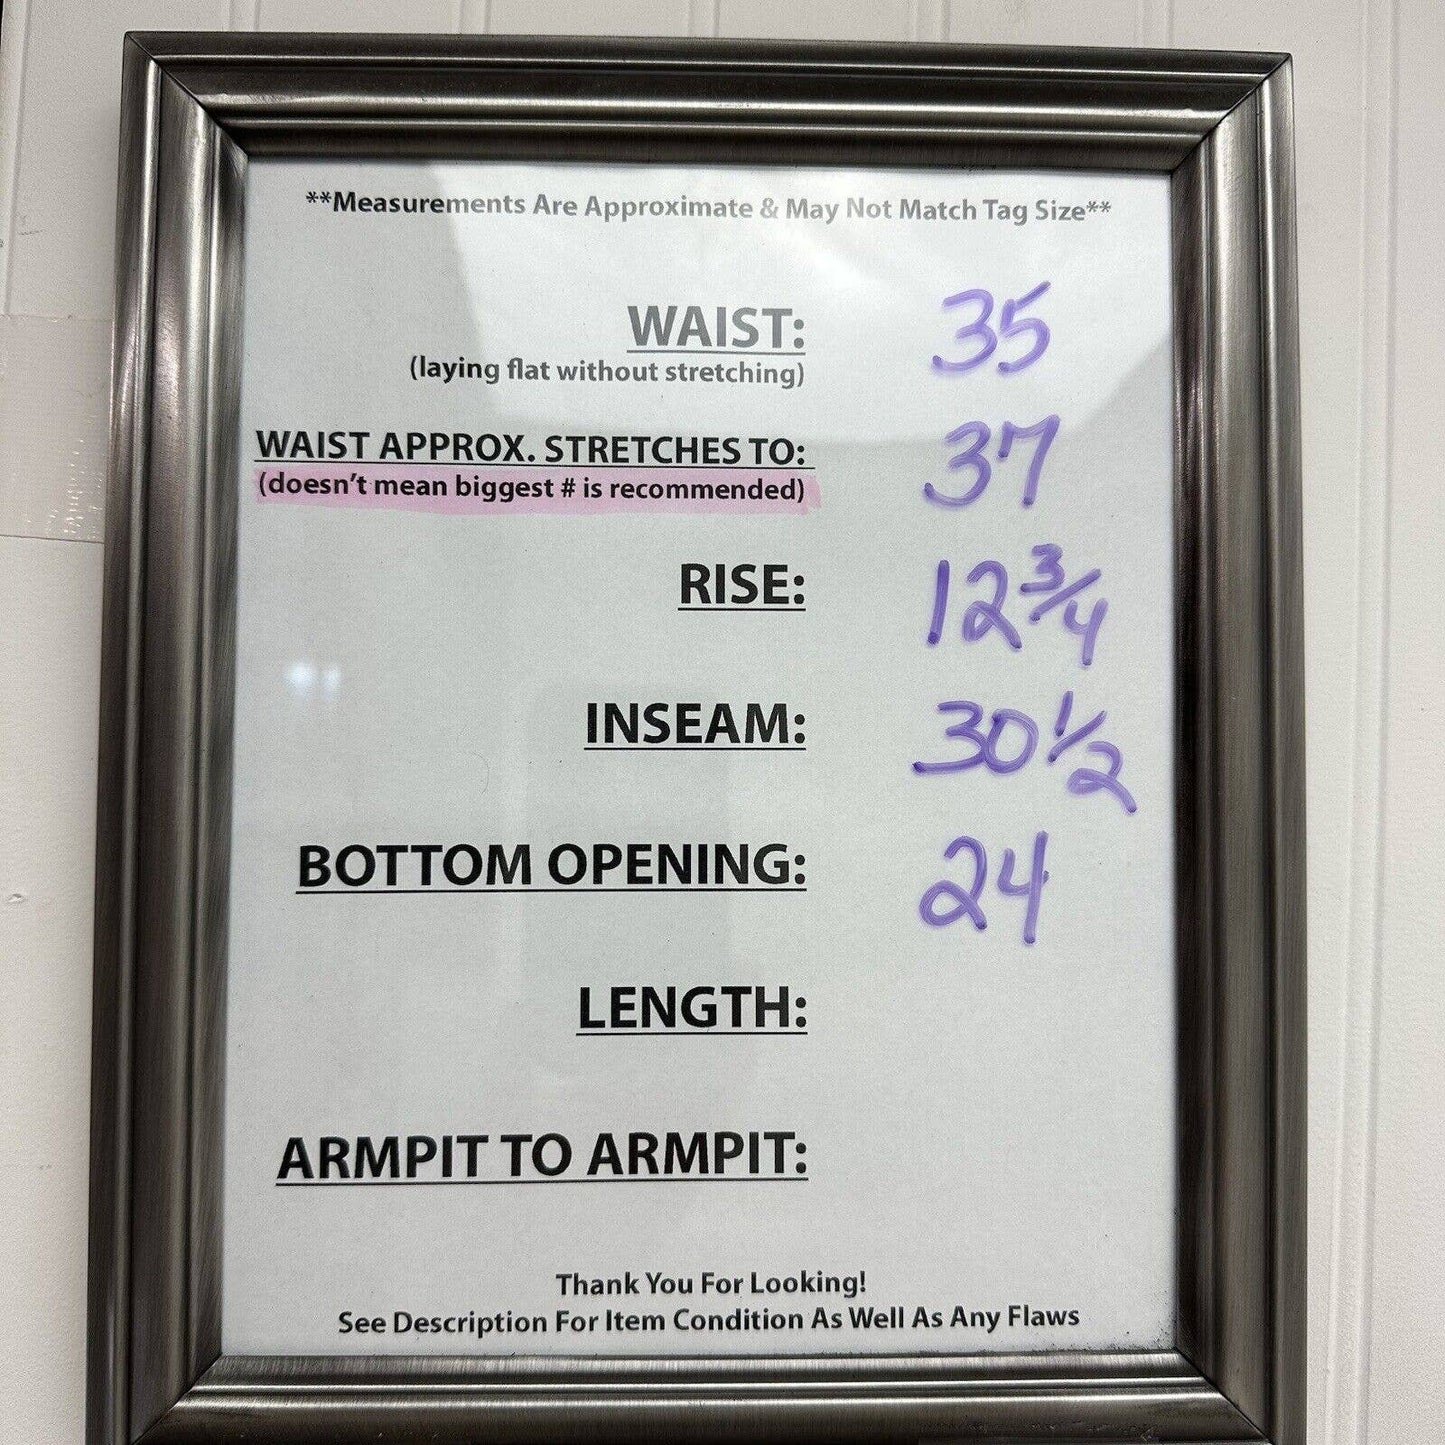 **Measurements Are Approximate & May Not Match Tag Size**
WAIST: 35
(laying flat without stretching)
WAIST APPROX. STRETCHES TO: 37
(doesn't mean biggest # is recommended)
RISE: 12 3/4
INSEAM: 30 1/2
BOTTOM OPENING: 24
LENGTH:
ARMPIT TO ARMPIT:
Thank You For Looking!
See Description For Item Condition As Well As Any Flaws